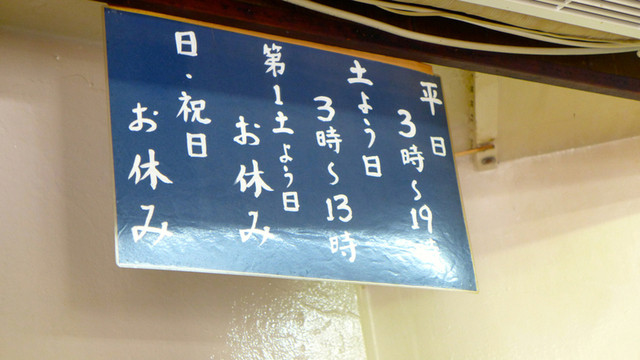 平日
3時~19時
土よう日
3時~13時
第1土よう日
お休み
日・祝日
お休み